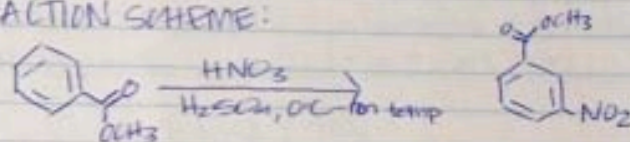 ACTION SCHEME:
O OCH3
HNO3
O
H2SO4, 0°C-rm temp
NO2
OCH3